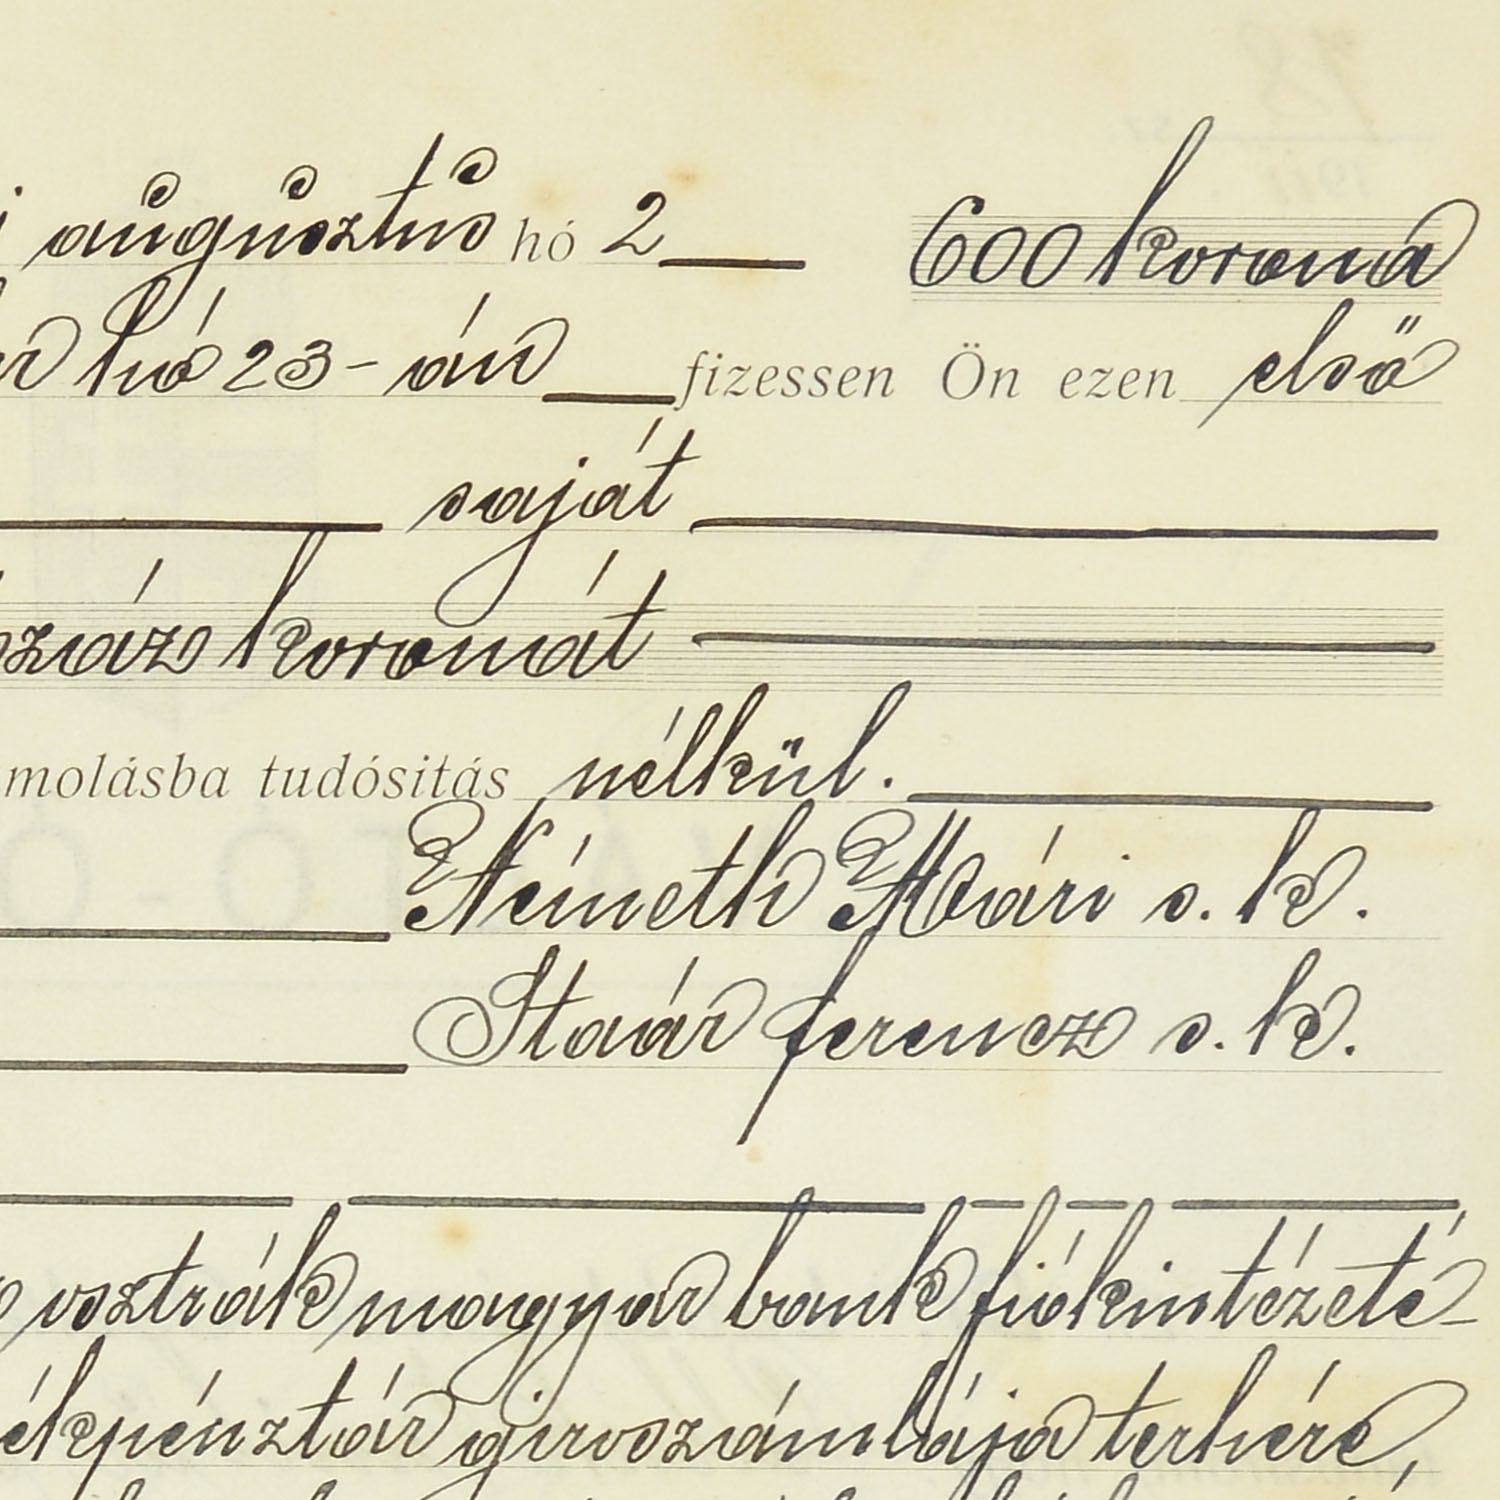 augusztus hó 2 600 korona
hó 23-án fizessen Ön ezen első
saját
száz koronát
molásba tudósitás nélkül.
Németh Mári s. k.
Staár ferencz s. k.
osztrák magyar bank fiókintézeté-
ékpénztár giroszámlája terhére,